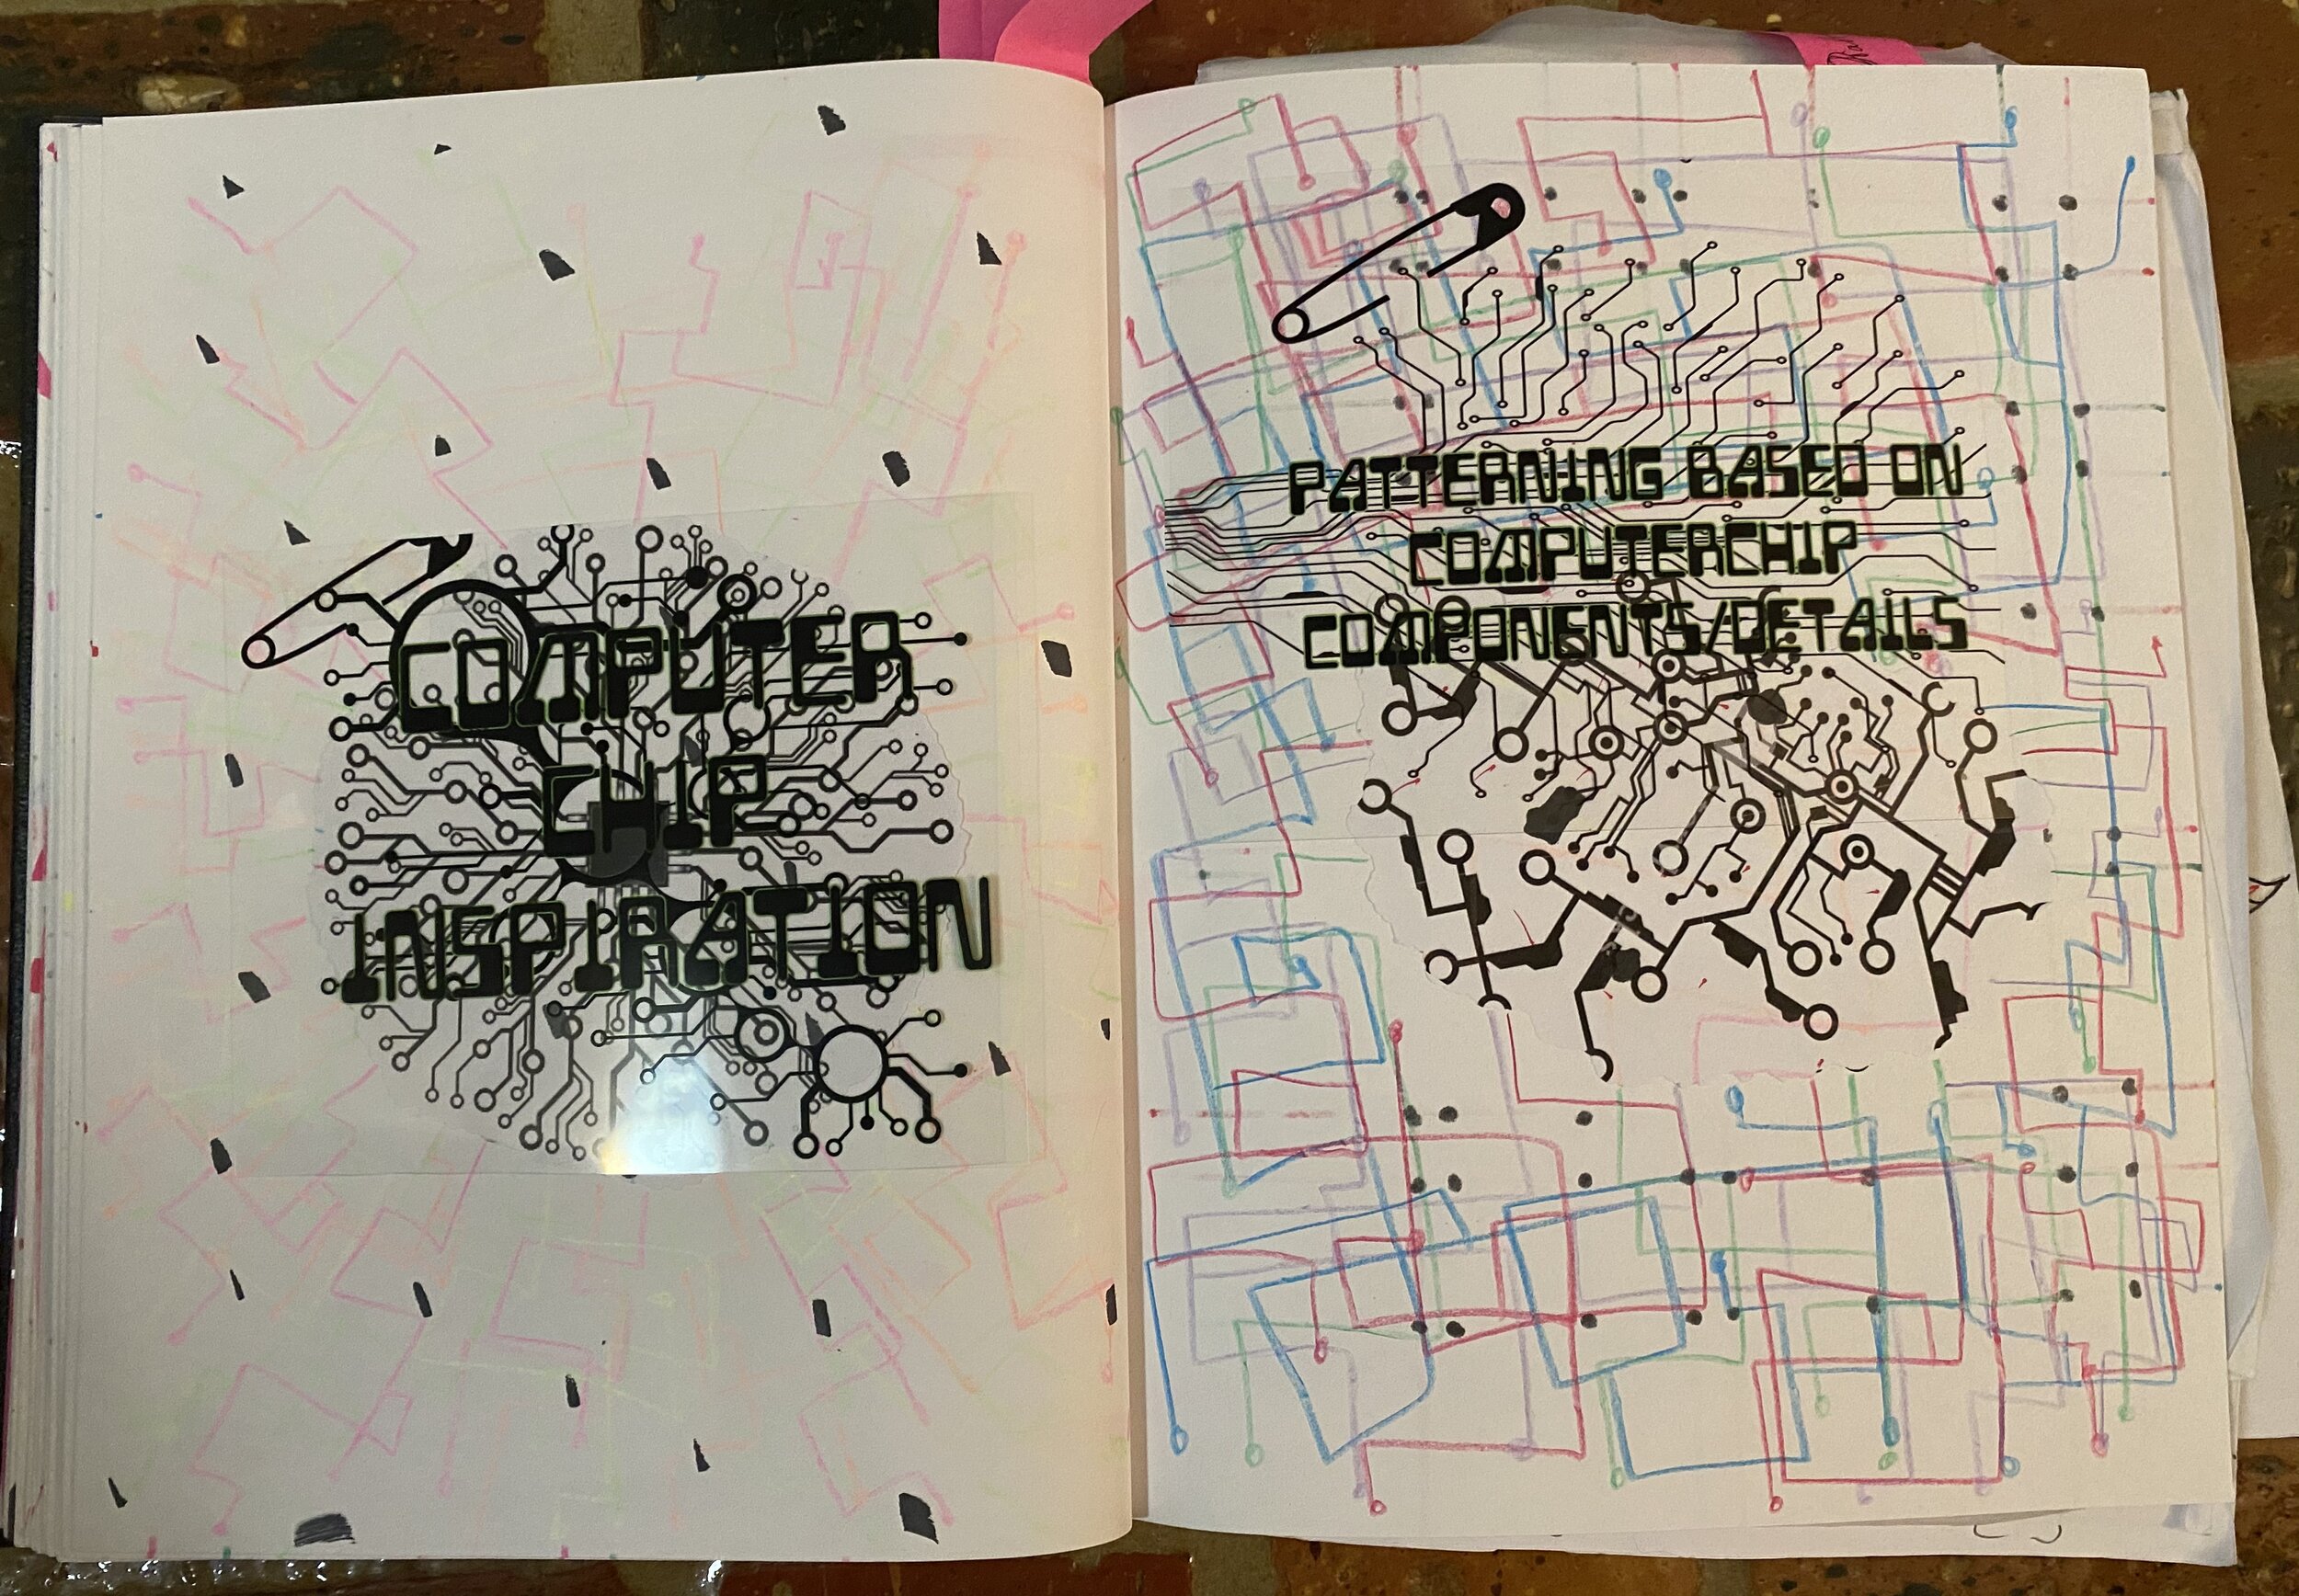 COMPUTER
CHIP
INSPIRATION
PATTERNING BASED ON
COMPUTERCHIP
COMPONENTS/DETAILS